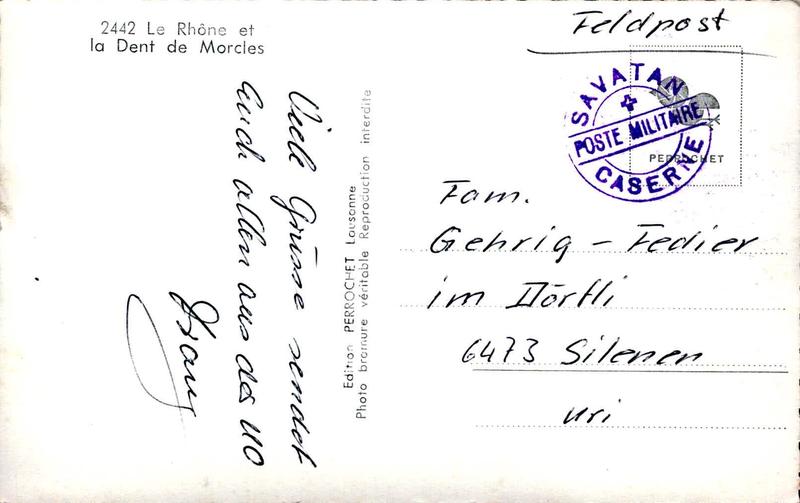 2442 Le Rhône et
la Dent de Morcles
Viele Grüsse sendet
Euch allen aus der UO
Edition PERROCHET Lausanne
Photo bromure véritable Reproduction interdite
Feldpost
SAVATAN
POSTE MILITAIRE
CASERNE
PERROCHET
Fam.
Gehrig - Fedier
im Dörfli
6473 Silenen
Uri